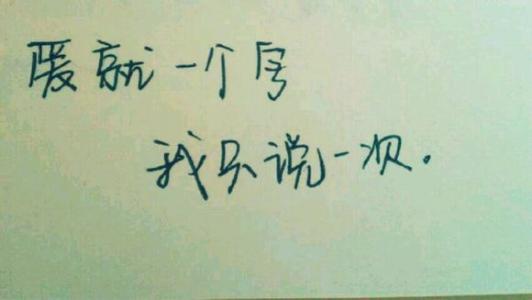 暖就一个字
我只说一次.